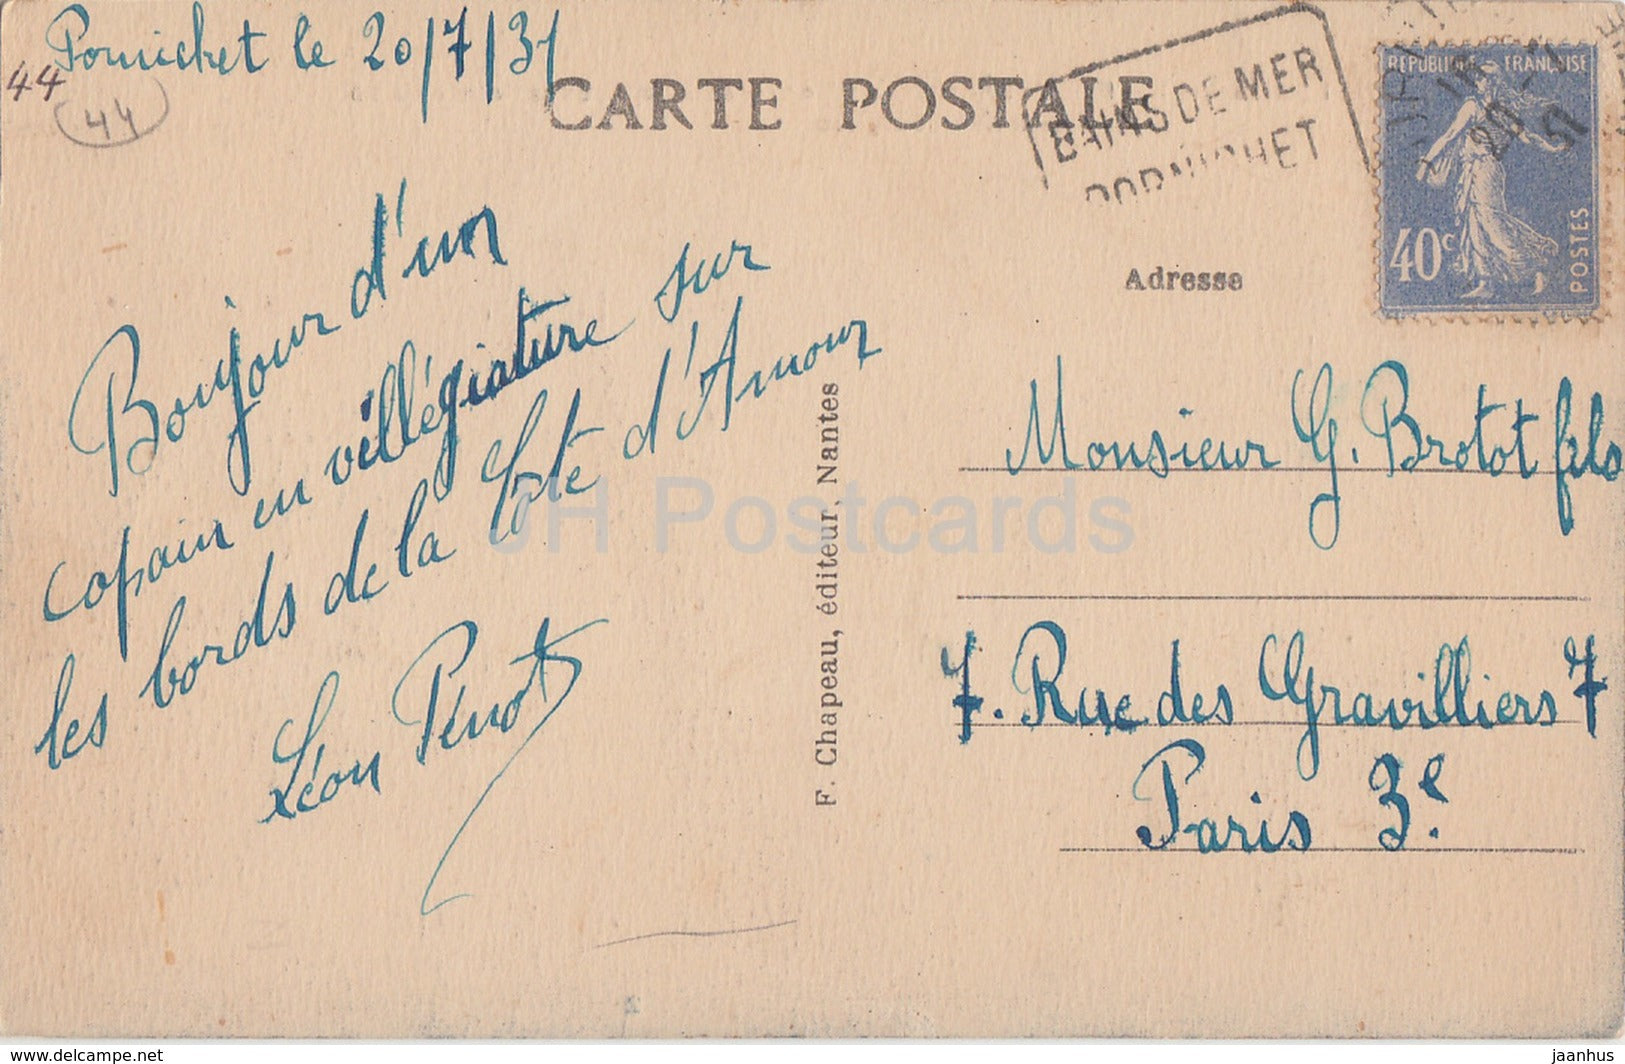 Pornichet le 20/7/31
44
44
CARTE POSTALE
BAINS DE MER
PORNICHET
RÉPUBLIQUE FRANÇAISE
40c
POSTES
20 - 7
31
Adresse
Bonjour d'un
copain en villégiature sur
les bords de la Côte d'Amour
Léon Pénot
F. Chapeau, éditeur, Nantes
Monsieur G. Brotot fils
7. Rue des Gravilliers 7
Paris 3e.
JH Postcards
www.delcampe.net
jaanhus